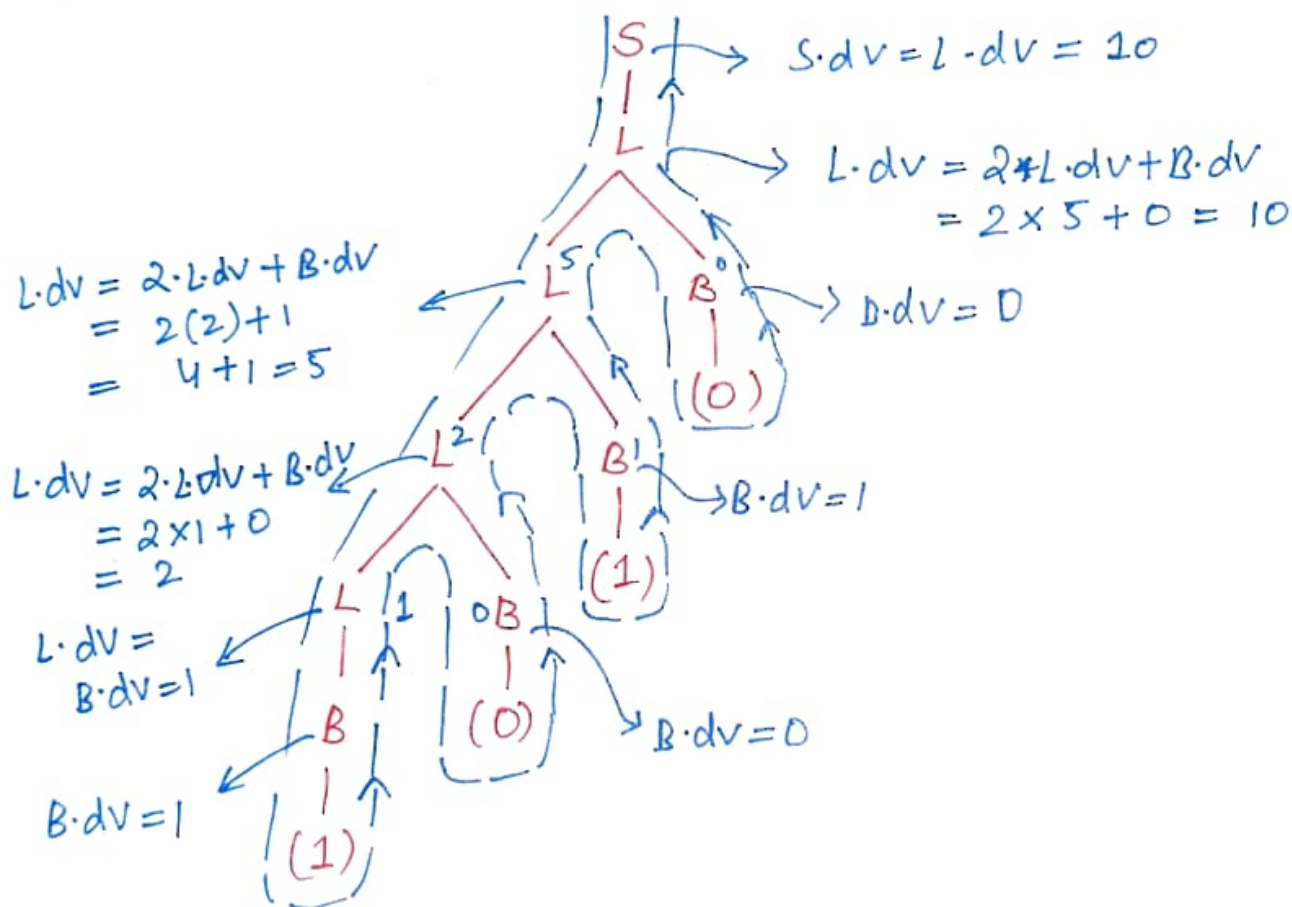 S
S.dV = L.dV = 10
L
L.dV = 2*L.dV+B.dV
= 2 × 5 + 0 = 10
L 5
B 0
L.dV = 2.L.dV + B.dV
= 2(2)+1
= 4+1=5
D.dV = 0
(0)
L 2
B 1
L.dV = 2.L.dV + B.dV
= 2×1+0
= 2
B.dV=1
(1)
L 1
0 B
L.dV =
B.dV=1
B
(0)
B.dV=0
B.dV=1
(1)